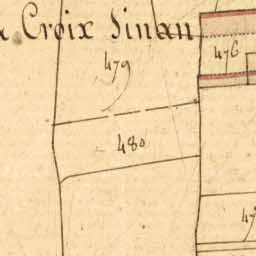 Croix Sinan
476
479
480